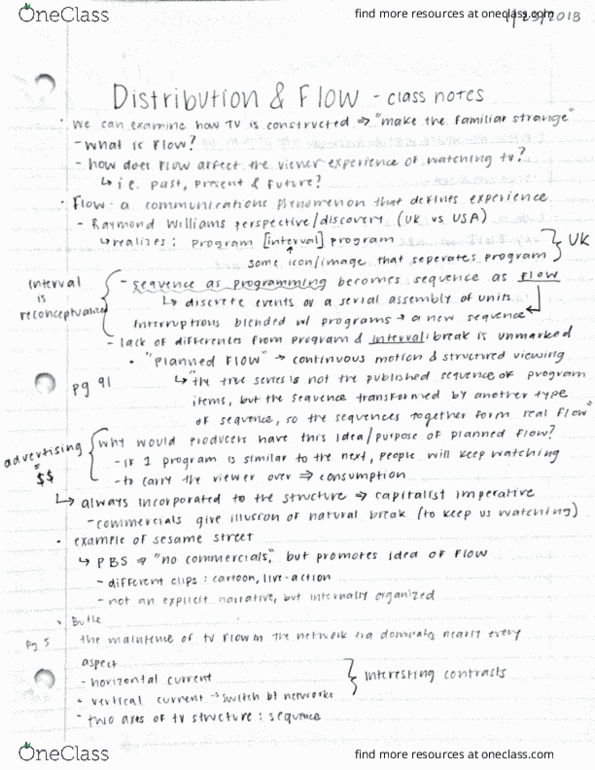 OneClass
find more resources at oneclass.com
1/23/2018
Distribution & Flow - class notes
• we can examine how TV is constructed ⇒ "make the familiar strange"
- what is flow?
- how does flow affect the viewer experience of watching tv?
↳ i.e. past, present & future?
• Flow: a communications phenomenon that defines experience
- Raymond Williams perspective/discovery (UK vs USA)
↳ realizes: program [interval] program
some icon/image that seperates program
} UK
interval is reconceptualized
- sequence as programming becomes sequence as flow
↳ discrete events or a serial assembly of units
Interruptions blended w/ programs → a new sequence
- lack of differences from program & interval: break is unmarked
• "planned flow" → continuous motion & structured viewing
pg 91
↳ "the true series is not the published sequence of program
items, but the sequence transformed by another type
of sequence, so the sequences together form real flow"
advertising = $$
why would producers have this idea/purpose of planned flow?
- if 1 program is similar to the next, people will keep watching
- to carry the viewer over ⇒ consumption
↳ always incorporated to the structure ⇒ capitalist imperative
- commercials give illusion of natural break (to keep us watching)
• example of sesame street
↳ PBS ⇒ "no commercials," but promotes idea of flow
- different clips: cartoon, live-action
- not an explicit narrative, but internally organized
• Butle
pg 5
the maintense of tv flow in the network era dominates nearly every
aspect
- horizontal current
- vertical current → switch bt networks
} interesting contrasts
- two axes of tv structure: sequence
OneClass
find more resources at oneclass.com